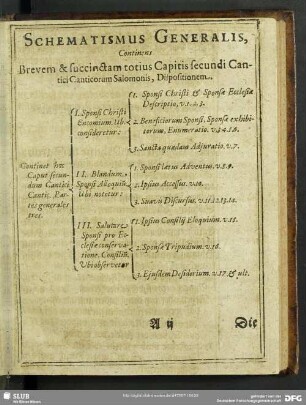 SCHEMATISMUS GENERALIS,
Continens
Brevem & succinctam totius Capitis secundi Can-
tici Canticorum Salomonis, Dispositionem.
Continet hoc
Caput secun-
dum Cantici
Cantic. Par-
tes generales
tres.
I. Sponsi Christi
Encomium. Ubi
consideretur:
1. Sponsi Christi & Sponsæ Ecclesiæ
Descriptio, v.1.2.3.
2. Beneficiorum Sponsi, Sponsæ exhibi-
torum, Enumeratio. v.3.4.5.6.
3. Sancta quædam Adjuratio. v.7.
II. Blandum,
Sponsi Alloquium.
Ubi notetur:
1. Sponsi latus Adventus. v.8.9.
2. Ipsius Accessus. v.10.
3. Suavis Discursus. v.11.12.13.14.
III. Salutare,
Sponsi pro Ec-
clesiæ conserva-
tione, Consilium.
Ubi observetur
1. Ipsum Consilij Eloquium. v.15.
2. Sponsæ Tripudium. v.16.
3. Ejusdem Desiderium. v.17. & ult.
A ij
Die
SLUB
DFG